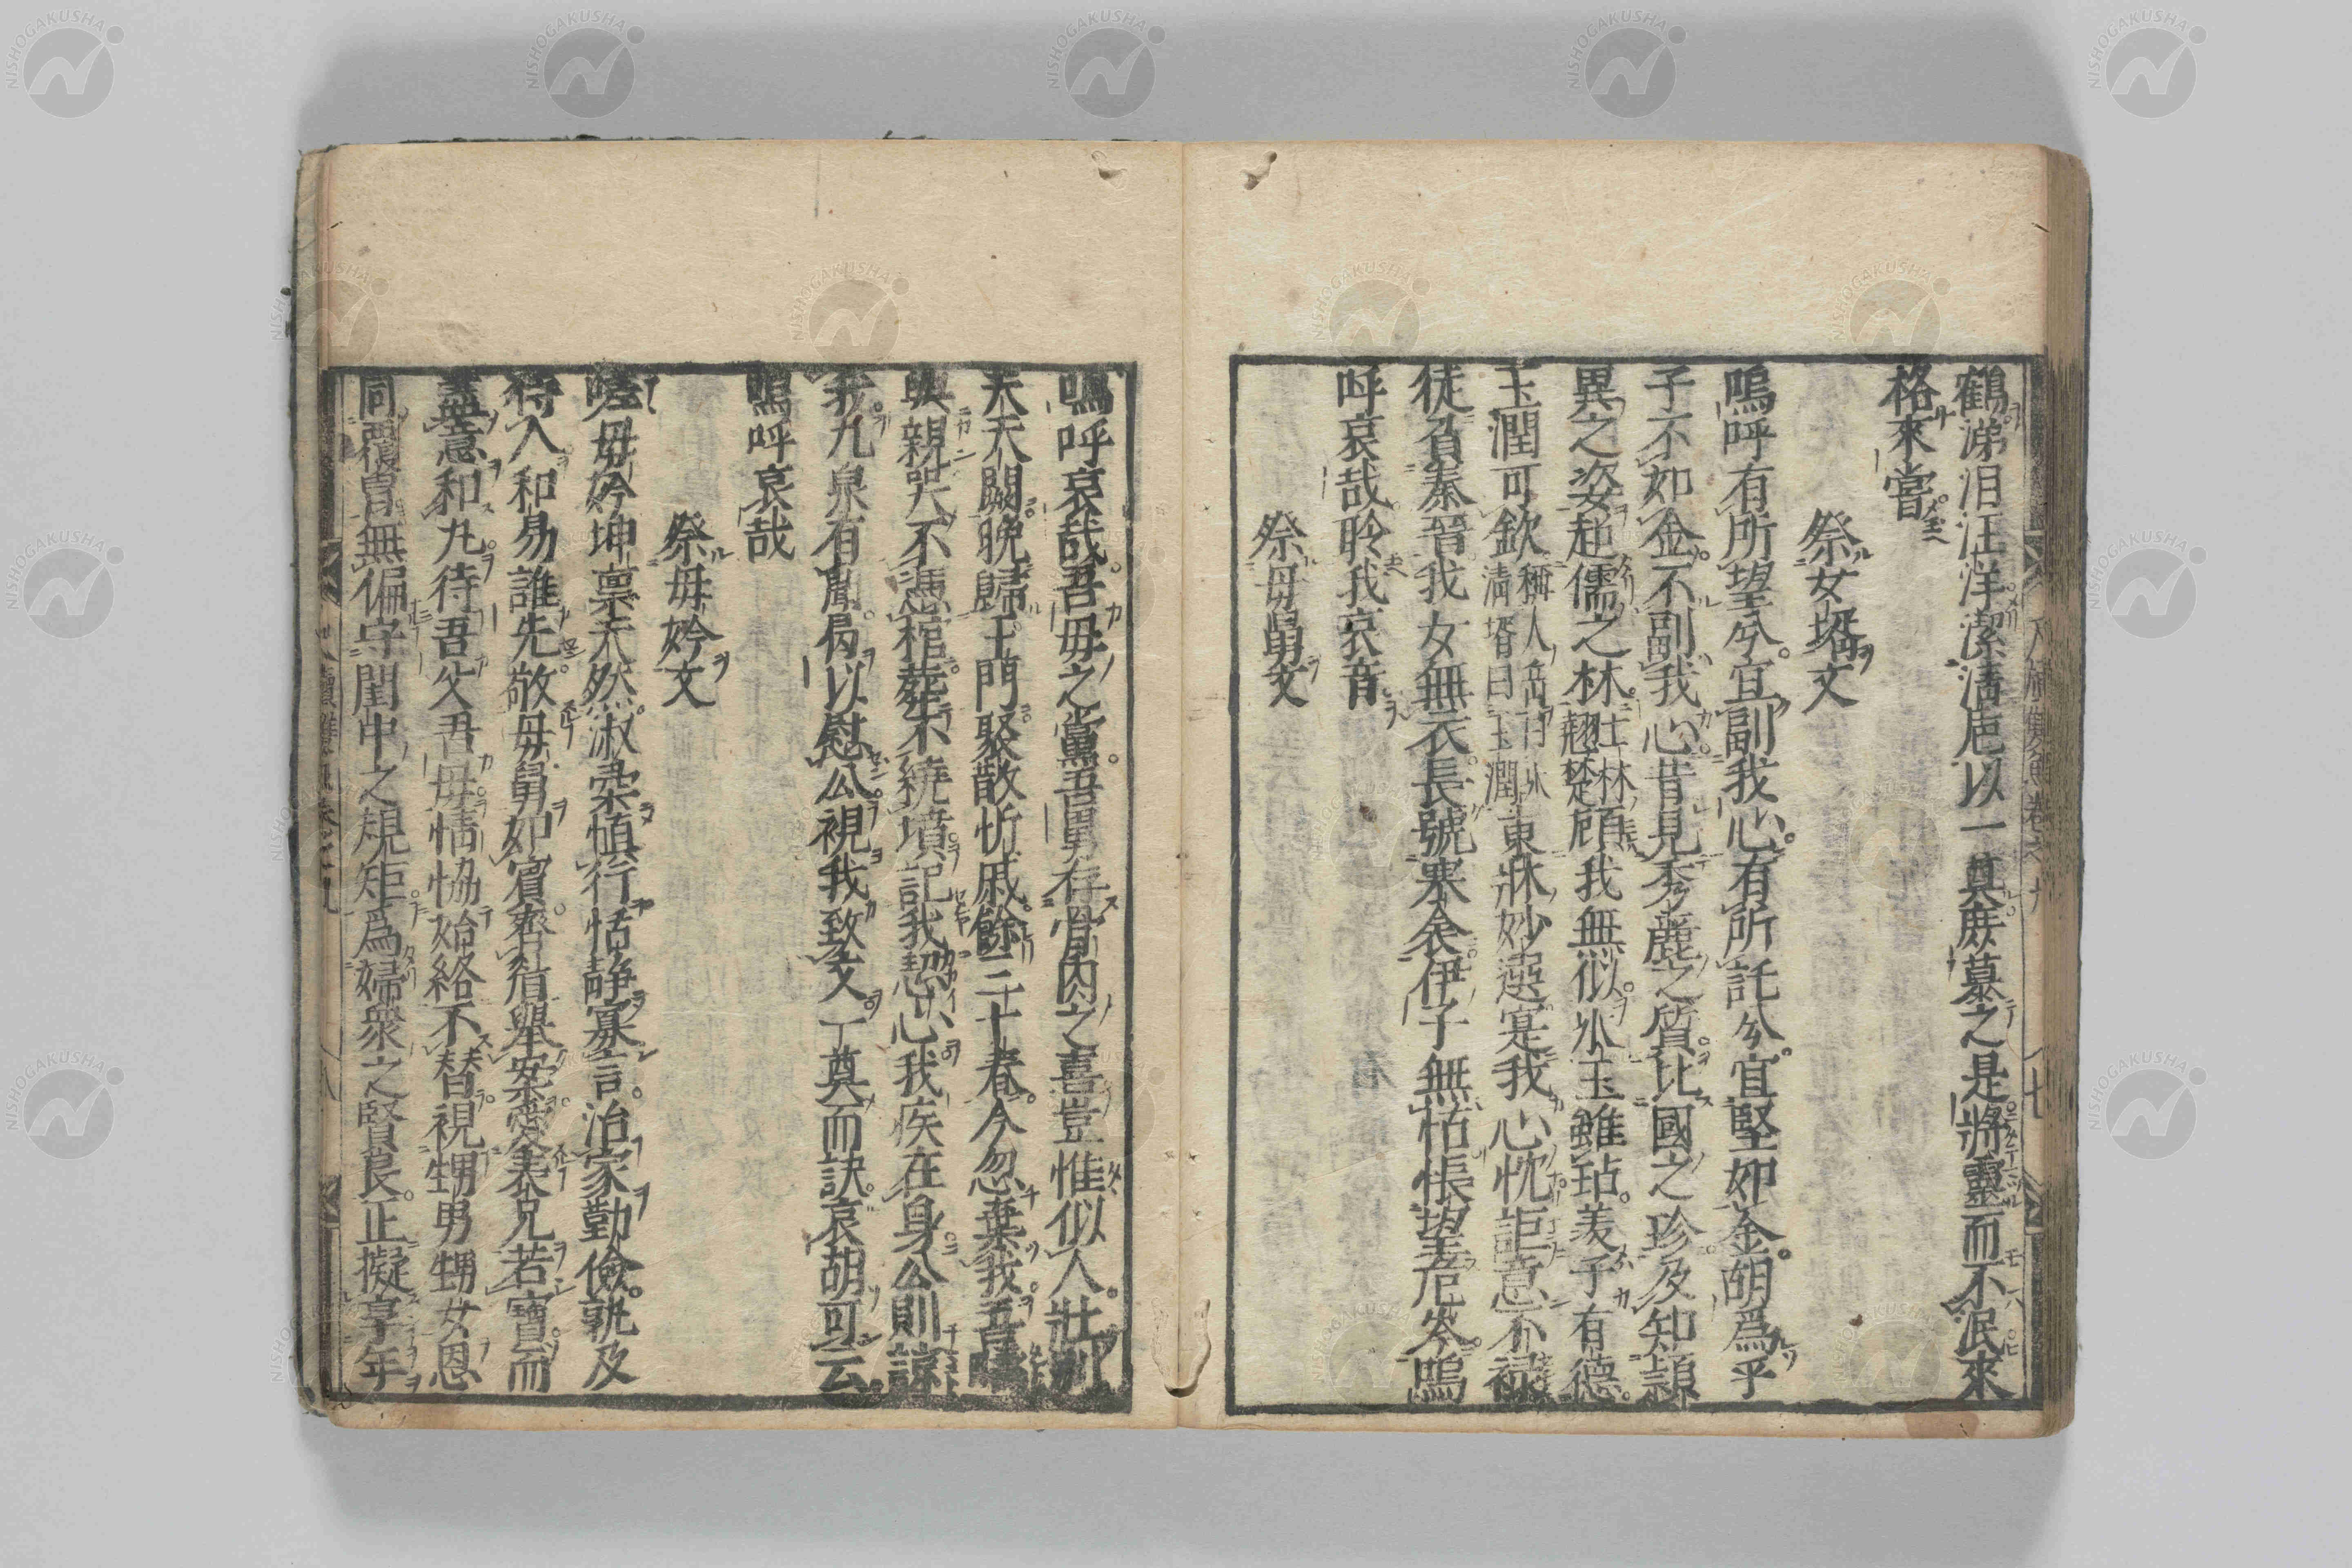 鶴涕泪汪洋潔淸巵以一奠蔗墓之是將靈而不泯來
格來嘗
祭女壻文
嗚呼有所望兮宜副我心有所託兮宜堅如金胡爲乎
子不如金不副我心昔見秀麗之質比國之珍及知頴
異之姿起儒之林士林翹楚頋我無似氷玉雖玷羡子有德
玉潤可欽稱人岳曰氷淸壻曰玉潤東牀妙選寔我心忱詎意不禄
徒負秦晉我女無衣長號寒衾伊子無怙悵望危岑嗚
呼哀哉聆我哀音
祭母舅文
嗚呼哀哉吾母之黨吾舅存骨肉之喜豈惟似人壯
夫天闕晚歸玉門聚散忻戚餘三十春今忽棄我吾
與親哭不憑棺葬不繞墳記我愬心我疾在身公則諒
我九泉有聞曷以慰公視我致文一奠而訣哀胡可云
嗚呼哀哉
祭母妗文
嗟母妗坤禀天然淑柔慎行恬靜寡言治家勤儉孰及
待人和易誰先敬母舅如賓齊眉舉案愛表兄若寶而
盡慈和丸待吾父吾母情恊始終不替視甥男甥女恩
同覆冒無偏守閨中之規矩爲婦衆之賢良正擬享年